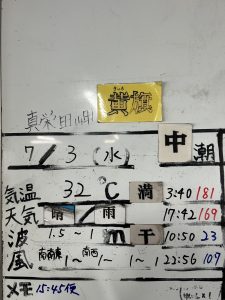 きっき
黄旗
真栄田岬
7/3(水) 中潮
気温 32℃ 満 3:40 181
天気 晴/雨 17:42 169
波 1.5~1 m 干 10:50 23
風 南南東 1~ 南西 1~ 1 22:56 109
メモ 15:45便